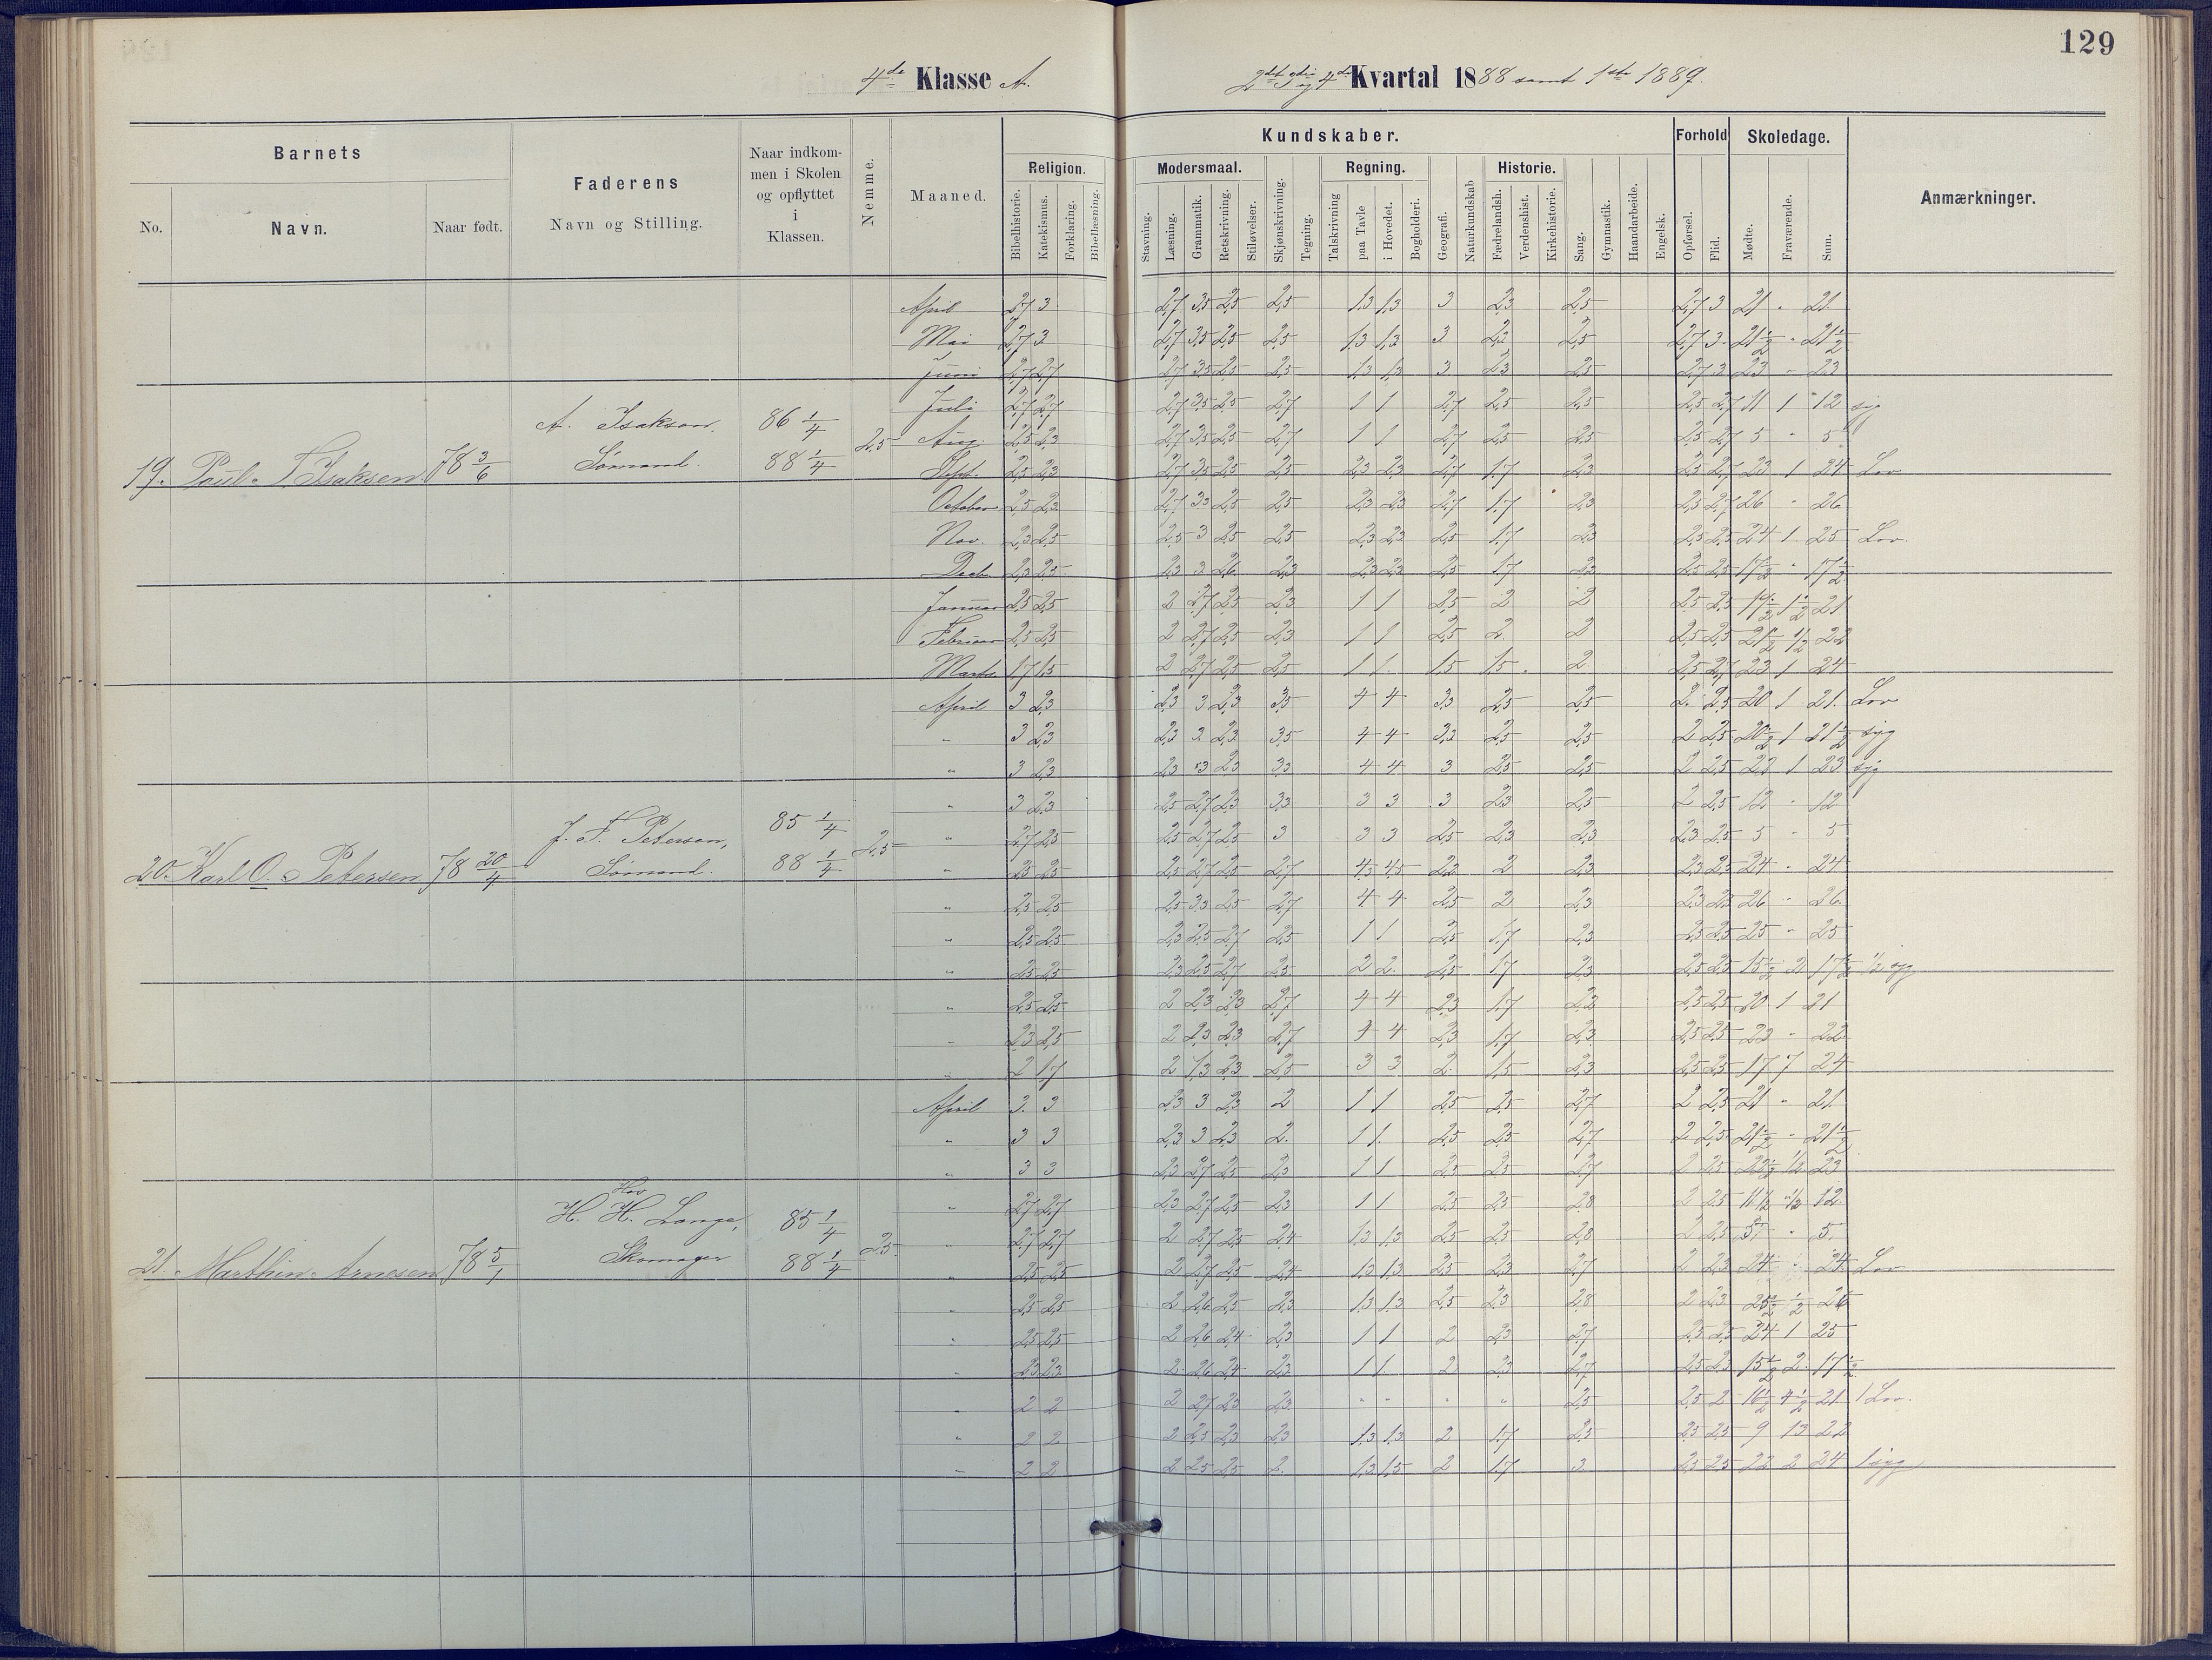 129
4de Klasse A.
2det 3die og 4de Kvartal 1888 samt 1ste 1889.
Barnets
No.
Navn.
Naar født.
Faderens
Navn og Stilling.
Naar indkom-
men i Skolen
og opflyttet
i
Klassen.
Nemme.
Maaned.
Kundskaber.
Religion.
Bibelhistorie.
Katekismus.
Forklaring.
Bibellæsning.
Modersmaal.
Stavning.
Læsning.
Grammatik.
Retskrivning.
Stiløvelser.
Skjønskrivning.
Tegning.
Regning.
Talskrivning
paa Tavle
i Hovedet.
Bogholderi.
Geografi.
Naturkundskab
Historie.
Fædrelandsh.
Verdenshist.
Kirkehistorie.
Sang.
Gymnastik.
Haandarbeide.
Engelsk.
Forhold
Opførsel.
Flid.
Skoledage.
Mødte.
Fraværende.
Sum.
Anmærkninger.
19. Paul T. Isaksen 78 3/6 A. Isaksen, Sømand. 86 1/4 88 1/4 2,5
April 2,7 3 2,7 3,5 2,5 2,5 1,3 1,3 3 2,3 2,5 2,7 3 21 " 21
Mai 2,7 3 2,7 3,5 2,5 2,5 1,3 1,3 3 2,3 2,5 2,7 3 21 1/2 " 21 1/2
Juni 2,7 2,7 2,7 3,5 2,5 2,5 1,3 1,3 3 2,3 2,5 2,7 3 23 " 23
Juli 2,7 2,7 2,7 3,5 2,5 2,7 1 1 2,7 2,5 2,5 2,5 2,7 11 1 12 syg
Aug. 2,5 2,3 2,7 3,5 2,5 2,7 1 1 2,7 2,5 2,5 2,5 2,7 5 " 5
Sept. 2,5 2,3 2,7 3,5 2,5 2,5 2,3 2,3 2,7 1,7 2,3 2,5 2,7 23 1 24 Lov
October 2,5 2,3 2,7 3,3 2,5 2,5 2,3 2,3 2,7 1,7 2,3 2,5 2,7 26 " 26
Nov. 2,3 2,5 2,5 3 2,5 2,5 2,3 2,3 2,5 1,7 2,3 2,5 2,3 24 1 25 Lov.
Decb. 2,3 2,5 2,3 3 2,6 2,3 2,3 2,3 2,5 1,7 2,3 2,5 2,5 17 1/2 " 17 1/2
Januar 2,5 2,5 2 2,7 2,5 2,3 1 1 2,5 2 2 2,5 2,5 19 1/2 1 1/2 21
Februar 2,5 2,5 2 2,7 2,5 2,3 1 1 2,5 2 2 2,5 2,5 21 1/2 1/2 22
Marts 1,7 1,5 2 2,7 2,5 2,5 1 1 1,5 1,5 2 2,5 2,7 23 1 24
20. Karl O. Petersen 78 20/4 J. F. Petersen, Sømand. 85 1/4 88 1/4 2,5
April 3 2,3 2,3 3 2,3 3,5 4 4 3,3 2,5 2,5 2 2,5 20 1 21 Lov
" 3 2,3 2,3 3 2,3 3,5 4 4 3,3 2,5 2,5 2 2,5 20 1/2 1 21 1/2 syg
" 3 2,3 2,3 3 2,3 3,3 4 4 3 2,5 2,5 2 2,5 22 1 23 syg
" 3 2,3 2,5 2,7 2,3 3,3 3 3 3 2,3 2,5 2 2,5 12 " 12
" 2,7 2,5 2,5 2,7 2,5 3 3 3 2,5 2,3 2,3 2,3 2,5 5 " 5
" 2,5 2,5 2,5 2,7 2,5 2,7 4,5 4,5 2,3 2 2,3 2,3 2,5 24 " 24
" 2,5 2,5 2,5 3,3 2,5 2,7 4 4 2,5 2 2,3 2,3 2,3 26 " 26
" 2,5 2,5 2,3 2,5 2,7 2,5 1 1 2,5 1,7 2,3 2,5 2,5 25 " 25
" 2,5 2,5 2,3 2,5 2,7 2,5 2 2 2,5 1,7 2,3 2,5 2,5 15 1/2 2 17 1/2 1/2 syg
" 2,5 2,5 2 2,3 2,3 2,7 4 4 2,3 1,7 2,3 2,5 2,5 20 1 21
" 2,3 2,5 2 2,3 2,3 2,7 4 4 2,3 1,7 2,3 2,5 2,5 22 " 22
" 2 1,7 2 1,3 2,3 2,5 3 3 2 1,5 2,3 2,5 2,5 17 7 24
21. Marthin Arnesen 78 5/1 H. Hov H. Lange, Skomager 85 1/4 88 1/4 2,5
April 3 3 2,3 3 2,3 2 1 1 2,5 2,5 2,7 2 2,5 21 " 21
" 3 3 2,3 3 2,3 2 1 1 2,5 2,5 2,7 2 2,5 21 1/2 " 21 1/2
" 3 3 2,3 2,7 2,5 2,3 1 1 2,5 2,5 2,7 2 2,5 22 1/2 1/2 23
" 2,7 2,7 2,3 2,7 2,5 2,3 1 1 2,5 2,5 2,8 2 2,5 11 1/2 1/2 12
" 2,7 2,7 2 2,7 2,5 2,4 1,3 1,3 2,5 2,5 2,8 2 2,5 5 " 5
" 2,5 2,5 2 2,7 2,5 2,4 1,3 1,3 2,5 2,3 2,7 2 2,3 24 " 24 Lov
" 2,5 2,5 2 2,6 2,5 2,3 1,3 1,3 2,5 2,3 2,8 2 2,3 25 1/2 1/2 26
" 2,5 2,5 2 2,6 2,4 2,3 1 1 2 2,3 2,7 2,5 2,5 24 1 25
" 2,3 2,3 2 2,6 2,4 2,3 1 1 2 2,3 2,7 2,5 2,3 15 1/2 2 17 1/2
" 2 2 2 2,7 2,3 2,3 " " " " 2,5 2,5 2 16 1/2 4 1/2 21 1 Lov.
" 2 2 2 2,5 2,3 2,3 1,3 1,3 2 1,7 2,5 2,5 2,5 9 13 22
" 2 2 2 2,5 2,5 2 1,3 1,5 2 1,7 3 2,5 2,5 22 2 24 1 syg